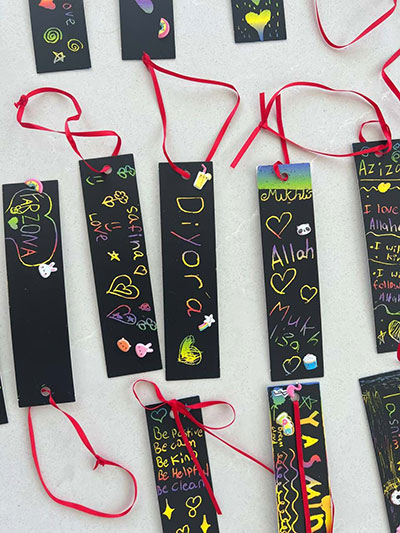 Love
ARZONA
safina
Love
Diyora
Mukhli
Allah
Azizа
I love
Allah
I will
I will
follow
Allah
Be Positive
Be Calm
Be Kind
Be Helpful
Be Clean
YASMIN